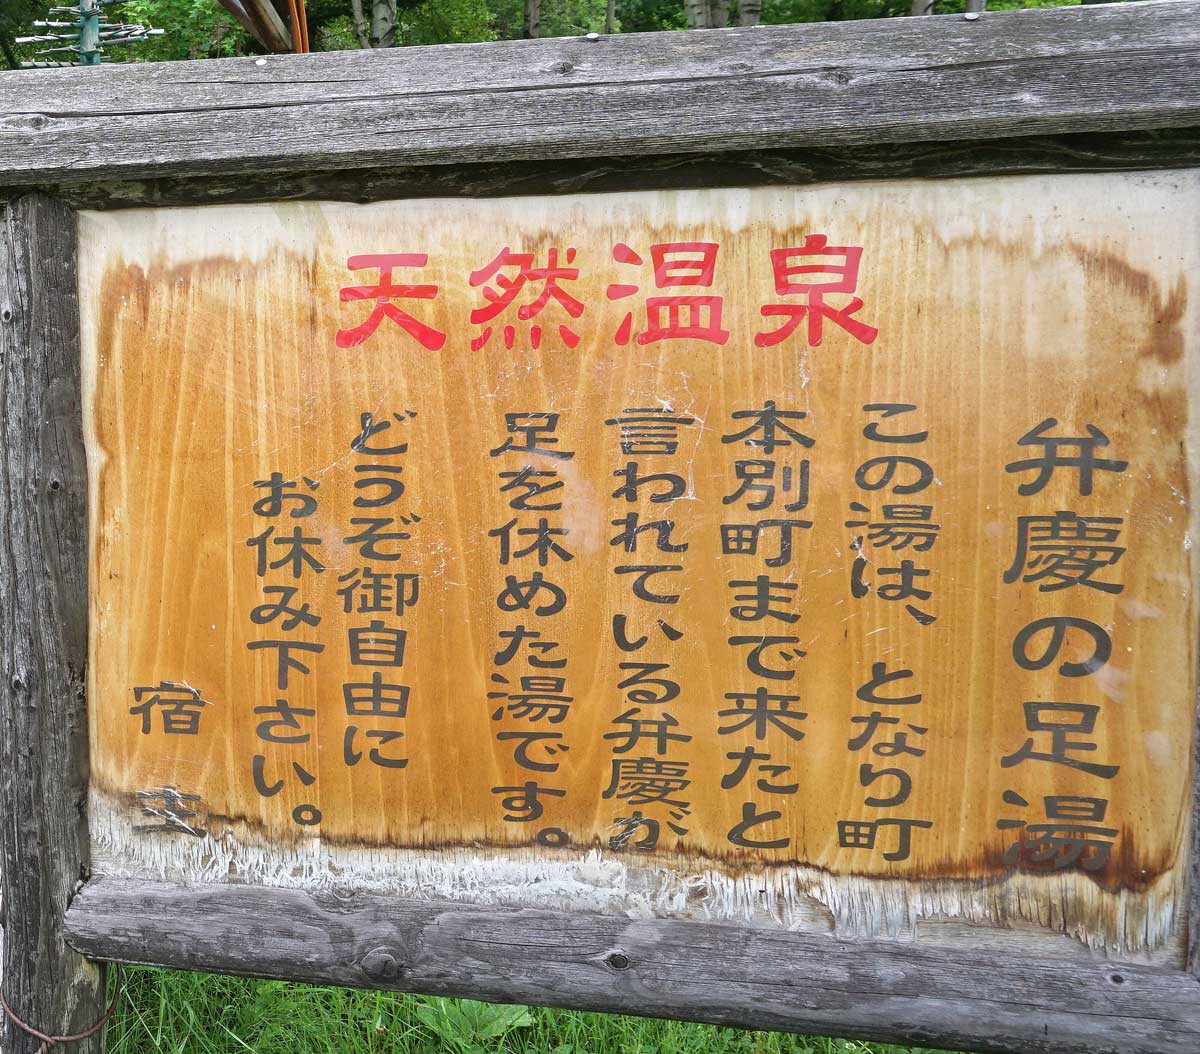 天然温泉
弁慶の足湯
この湯は、となり町
本別町まで来たと
言われている弁慶が
足を休めた湯です。
どうぞ御自由に
お休み下さい。
宿主